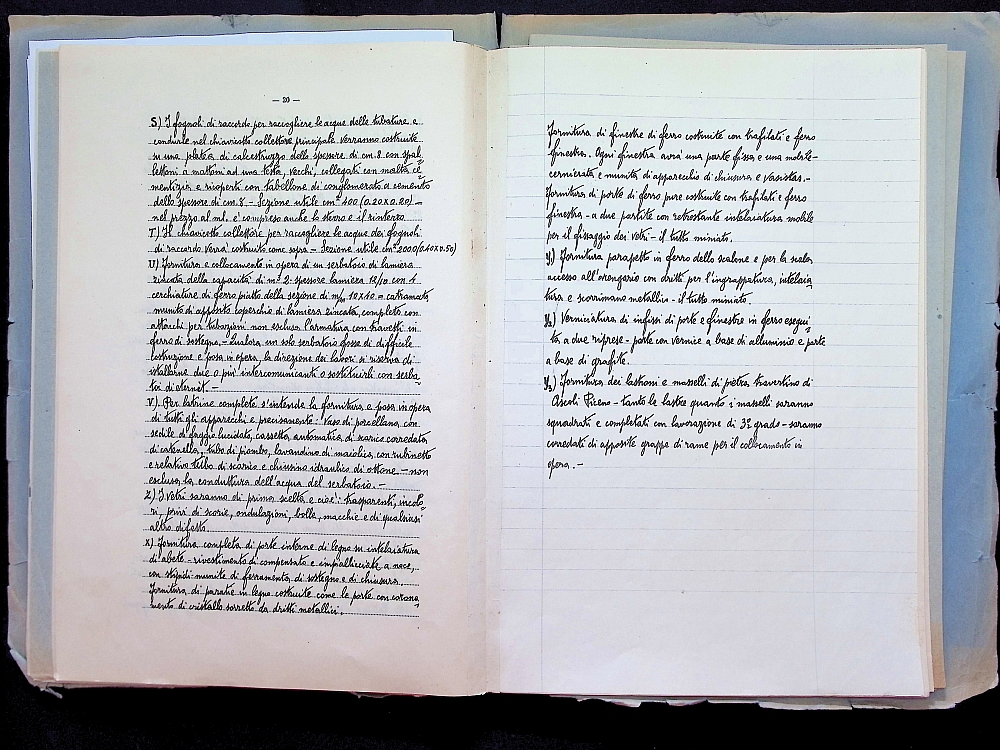 — 20 —
S) I fognoli di raccordo per raccogliere le acque delle tubature e
condurle nel chiavicotto collettore principale verranno costruite
su una platea di calcestruzzo dello spessore di cm. 8 con spal
lettoni a mattoni ad una testa, vecchi, collegati con malta ce
mentizia e ricoperti con tabellone di conglomerato a cemento
dello spessore di cm. 8. - Sezione utile cm² 400 (0.20 x 0.20) -
nel prezzo al ml. e' compreso anche lo sterro e il rinterro
T) Il chiavicotto collettore per raccogliere le acque dei fognoli
di raccordo verra' costruito come sopra - Sezione utile cm² 2000 (0.40 x 0.50)
U) Fornitura e collocamento in opera di un serbatoio di lamiera
zincata della capacità di m³ 2 - spessore lamiera 12/10 con 4
cerchiature di ferro piatto della sezione di m/m 10 x 40 = catramata,
munito di apposito coperchio di lamiera zincata, completo con
attacchi per tubazioni non esclusa l'armatura con travetti in
ferro di sostegno. - Qualora un solo serbatoio fosse di difficile
costruzione e posa in opera, la direzione dei lavori si riserva di
istallarne due o piu' intercomunicanti o sostituirli con serba
toi di eternit.
V) Per latrine complete s'intende la fornitura e posa in opera
di tutti gli apparecchi e precisamente: Vaso di porcellana con
sedile di faggio lucidato, cassetta automatica di scarico corredata
di catenella, tubo di piombo, lavandino di maiolica con rubinetto
e relativo tubo di scarico e chiusino idraulico di ottone - non
esclusa la conduttura dell'acqua del serbatoio. -
Z) I vetri saranno di prima scelta e cioe': trasparenti, incolo
ri, privi di scorie, ondulazioni, bolle, macchie e di qualsiasi
altro difetto.
X) Fornitura completa di porte interne di legno su intelaiatura
di abete - rivestimento di compensato e impallicciate a noce,
con stipidi - munite di ferramenta, di sostegno e di chiusura,
Fornitura di paratie in legno costruite come le porte con corona
mento di cristallo sorretto da dritti metallici.
Fornitura di finestre di ferro costruite con trafilati e ferro
finestra. Ogni finestra avra' una parte fissa e una mobile -
cernierata e munita di apparecchio di chiusura e vasistas. -
Fornitura di porte di ferro pure costruite con trafilati e ferro
finestra - a due partite con retrostante intelaiatura mobile
per il fissaggio dei vetri - il tutto miniato.
Y₁) Fornitura parapetto in ferro dello scalone e per la scala
accesso all'arengario con dritti per l'ingrappatura, intelaia
tura e scorrimano metallico - il tutto miniato
Y₂) Verniciatura di infissi di porte e finestre in ferro esegui
ta, a due riprese - parte con vernice a base di alluminio e parte
a base di grafite.
Y₃) Fornitura dei lastroni e masselli di pietra travertino di
Ascoli Piceno - tanto le lastre quanto i masselli saranno
squadrati e completati con lavorazione di 3° grado - saranno
corredati di apposite grappe di rame per il collocamento in
opera. -